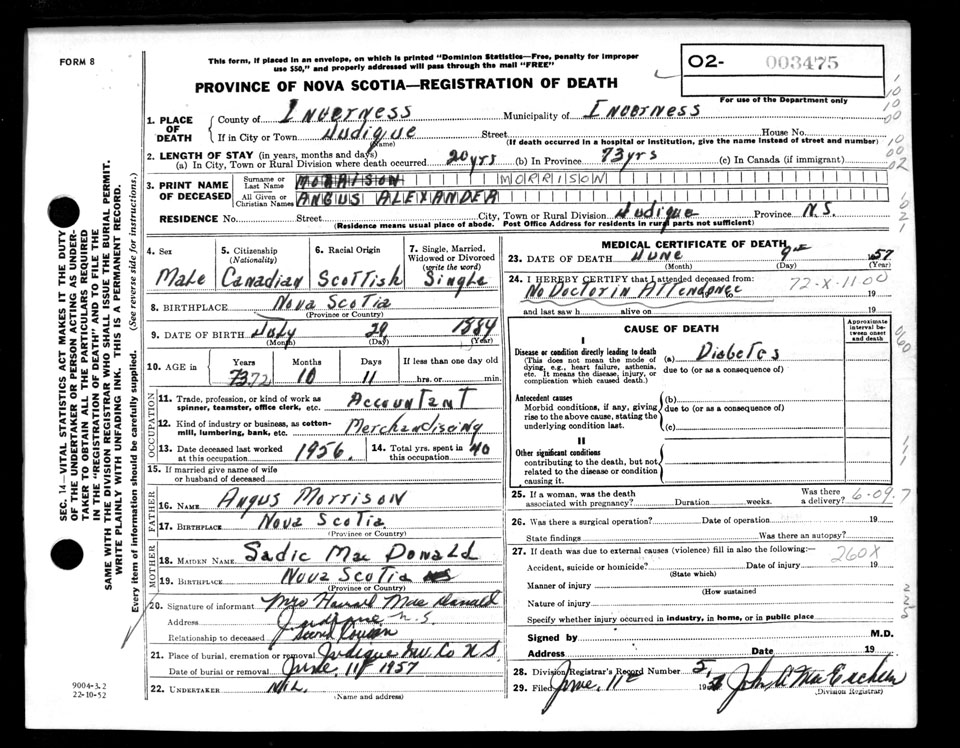 FORM 8
This form, if placed in an envelope, on which is printed "Dominion Statistics—Free, penalty for improper
use $50," and properly addressed will pass through the mail "FREE"
O2- 003475
For use of the Department only
PROVINCE OF NOVA SCOTIA—REGISTRATION OF DEATH
1. PLACE OF DEATH
County of Inverness Municipality of Inverness
If in City or Town Judique Street House No.
(Name) (If death occurred in a hospital or institution, give the name instead of street and number)
2. LENGTH OF STAY (in years, months and days)
(a) In City, Town or Rural Division where death occurred 20 yrs (b) In Province 73 yrs (c) In Canada (if immigrant)
3. PRINT NAME OF DECEASED
Surname or Last Name MORRISON MORRISON
All Given or Christian Names ANGUS ALEXANDER
RESIDENCE No. Street City, Town or Rural Division Judique Province N.S.
(Residence means usual place of abode. Post Office Address for residents in rural parts not sufficient)
4. Sex Male
5. Citizenship (Nationality) Canadian
6. Racial Origin Scottish
7. Single, Married, Widowed or Divorced (write the word) Single
8. BIRTHPLACE Nova Scotia
(Province or Country)
9. DATE OF BIRTH July 29 1884
(Month) (Day) (Year)
10. AGE in Years Months Days If less than one day old
73 72 10 11 hrs. or min.
OCCUPATION
11. Trade, profession, or kind of work as spinner, teamster, office clerk, etc. Accountant
12. Kind of industry or business, as cotton-mill, lumbering, bank, etc. Merchandising
13. Date deceased last worked at this occupation 1956.
14. Total yrs. spent in this occupation 40
15. If married give name of wife or husband of deceased
FATHER
16. NAME Angus Morrison
17. BIRTHPLACE Nova Scotia
(Province or Country)
MOTHER
18. MAIDEN NAME Sadie Mac Donald
19. BIRTHPLACE Nova Scotia
(Province or Country)
20. Signature of informant Mrs Mac Donald
Address Judique N.S.
Relationship to deceased Second Cousin
21. Place of burial, cremation or removal Judique Inv. Co N.S.
Date of burial or removal June 11 1957
22. UNDERTAKER Nil
(Name and address)
MEDICAL CERTIFICATE OF DEATH
23. DATE OF DEATH June 9 1957
(Month) (Day) (Year)
24. I HEREBY CERTIFY that I attended deceased from:
No Doctor in Attendance to 19
72-X-1100
and last saw h alive on 19
CAUSE OF DEATH
Approximate interval between onset and death
I
Disease or condition directly leading to death (a) Diabetes
(This does not mean the mode of dying, e.g., heart failure, asthenia, etc. It means the disease, injury, or complication which caused death.)
due to (or as a consequence of)
Antecedent causes (b)
Morbid conditions, if any, giving rise to the above cause, stating the underlying condition last.
due to (or as a consequence of)
(c)
II
Other significant conditions
contributing to the death, but not related to the disease or condition causing it.
25. If a woman, was the death associated with pregnancy? Duration weeks. Was there a delivery?
6-09.7
26. Was there a surgical operation? Date of operation 19
State findings Was there an autopsy?
27. If death was due to external causes (violence) fill in also the following:—
260X
Accident, suicide or homicide? Date of injury 19
(State which)
Manner of injury
(How sustained
Nature of injury
Specify whether injury occurred in industry, in home, or in public place
Signed by M.D.
Address Date 19
28. Division Registrar's Record Number 5
29. Filed June, 11 195
(Division Registrar)
SEC. 14—VITAL STATISTICS ACT MAKES IT THE DUTY
OF THE UNDERTAKER OR PERSON ACTING AS UNDER-
TAKER TO OBTAIN ALL THE PARTICULARS REQUIRED
IN THE "REGISTRATION OF DEATH" AND TO FILE THE
SAME WITH THE DIVISION REGISTRAR WHO SHALL ISSUE THE BURIAL PERMIT.
WRITE PLAINLY WITH UNFADING INK. THIS IS A PERMANENT RECORD.
Every item of information should be carefully supplied. (See reverse side for instructions.)
9004-3.2
22-10-52